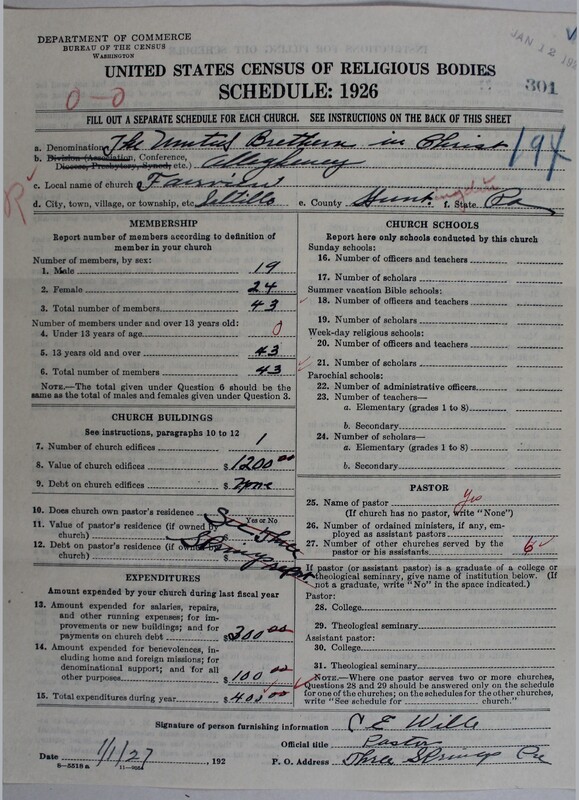 DEPARTMENT OF COMMERCE
BUREAU OF THE CENSUS
WASHINGTON
JAN 12 192
UNITED STATES CENSUS OF RELIGIOUS BODIES
SCHEDULE: 1926
0-0
301
FILL OUT A SEPARATE SCHEDULE FOR EACH CHURCH. SEE INSTRUCTIONS ON THE BACK OF THIS SHEET
194
a. Denomination The United Brethern in Christ
b. Division (Association, Conference,
Diocese, Presbytery, Synod, etc.) Allegheney
c. Local name of church Fairview
R
d. City, town, village, or township, etc. Saltillo e. County Huntingdon f. State Pa
MEMBERSHIP
Report number of members according to definition of
member in your church
Number of members, by sex:
1. Male 19
2. Female 24
3. Total number of members 43
Number of members under and over 13 years old:
4. Under 13 years of age 0
5. 13 years old and over 43
6. Total number of members 43
NOTE.—The total given under Question 6 should be
the same as the total of males and females given under Question 3.
CHURCH BUILDINGS
See instructions, paragraphs 10 to 12
7. Number of church edifices 1
8. Value of church edifices $1200.00
9. Debt on church edifices $ None
10. Does church own pastor's residence
Yes or No
11. Value of pastor's residence (if owned by
church) $
12. Debt on pastor's residence (if owned by
church) $
See Three
Springs report
EXPENDITURES
Amount expended by your church during last fiscal year
13. Amount expended for salaries, repairs,
and other running expenses; for im-
provements or new buildings; and for
payments on church debt $300.00
14. Amount expended for benevolences,
including home and foreign missions; for
denominational support; and for all
other purposes $100.00
15. Total expenditures during year $400.00
CHURCH SCHOOLS
Report here only schools conducted by this church
Sunday schools:
16. Number of officers and teachers
17. Number of scholars
Summer vacation Bible schools:
18. Number of officers and teachers
19. Number of scholars
Week-day religious schools:
20. Number of officers and teachers
21. Number of scholars
Parochial schools:
22. Number of administrative officers
23. Number of teachers—
a. Elementary (grades 1 to 8)
b. Secondary
24. Number of scholars—
a. Elementary (grades 1 to 8)
b. Secondary
PASTOR
25. Name of pastor Yes
(If church has no pastor, write "None")
26. Number of ordained ministers, if any, em-
ployed as assistant pastors
27. Number of other churches served by the
pastor or his assistants 6
If pastor (or assistant pastor) is a graduate of a college or
theological seminary, give name of institution below. (If
not a graduate, write "No" in the space indicated.)
Pastor:
28. College
29. Theological seminary
Assistant pastor:
30. College
31. Theological seminary
NOTE.—Where one pastor serves two or more churches,
Questions 28 and 29 should be answered only on the schedule
for one of the churches; on the schedules for the other churches,
write "See schedule for church."
Signature of person furnishing information C E Wills
Official title Pastor
Date 1/1/27, 192 P. O. Address Three Springs Pa
8-5518 a